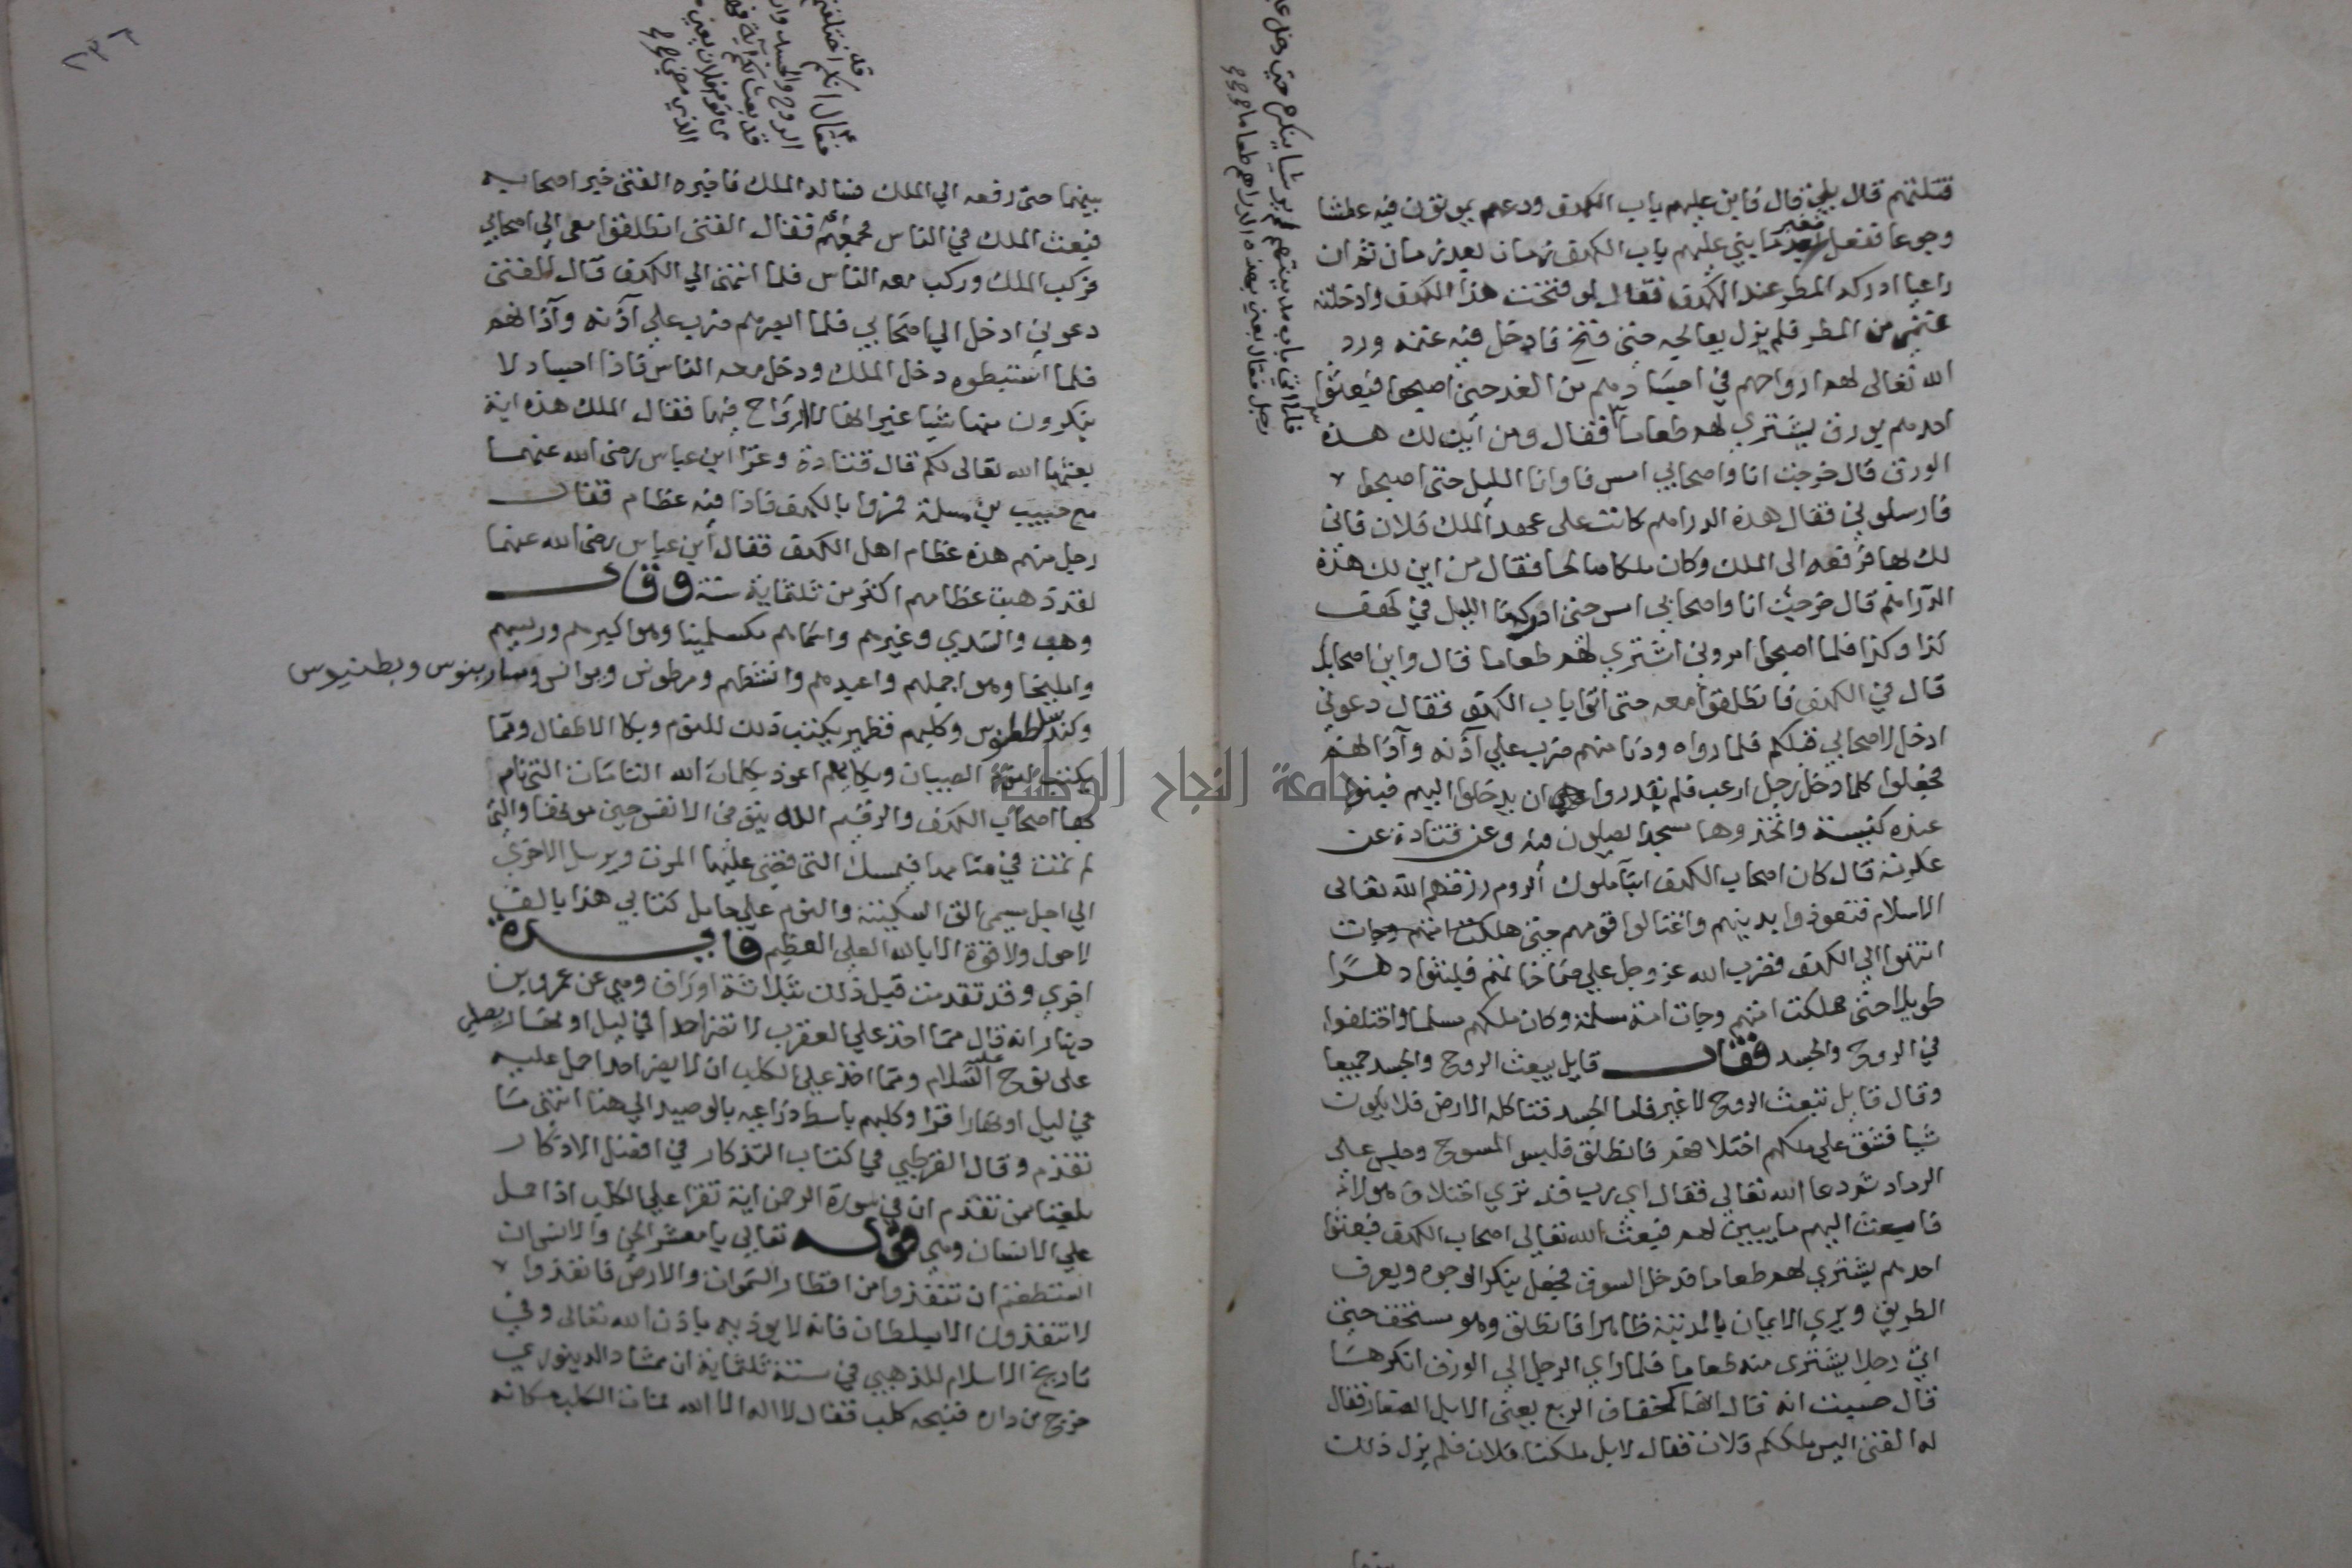 قتلتهم قال بلي قال فابن عليهم باب الكهف ودعهم يموتون فيه عطشا
وجوعا ففعل فغبر بعد ما بني عليهم باب الكهف زمان بعد زمان ثم ان
راعيا ادركه المطر عند الكهف فقال لو فتحت هذا الكهف وادخلته
غنمي من المطر فلم يزل يعالجه حتى فتح فادخل فيه غنمه ورد
الله تعالى لهم ارواحهم في اجسادهم من الغد حتى اصبحوا فبعثوا
احدهم بورق يشتري لهم طعاما فقال ومن أين لك هذه
الورق قال خرجت انا واصحابي امس فاوانا الليل حتى اصبحوا
فارسلوني فقال هذه الدراهم كانت على عهد الملك فلان فاني
لك بها فرفعه الى الملك وكان ملكا صالحا فقال من اين لك هذه
الدراهم قال خرجت انا واصحابي امس حتى ادركنا الليل في كهف
كذا وكذا فلما اصبحوا امروني اشتري لهم طعاما قال واين اصحابك
قال في الكهف فانطلقوا معه حتى اتوا باب الكهف فقال دعوني
ادخل لاصحابي قبلكم فلما رواه ودنا منهم ضرب علي آذنه وآذانهم
فجعلوا كلما دخل رجل ارعب فلم يقدروا علي ان يدخلوا اليهم فبنوا
عنده كنيسة واتخذوها مسجدا يصلون فيه وعن قتادة عن
عكرمة قال كان اصحاب الكهف ابنا ملوك الروم رزقهم الله تعالى
الاسلام فتعوذوا بدينهم واعتزلوا قومهم حتى
انتهوا الي الكهف فضرب الله عز وجل علي صماخاتهم فلبثوا دهرا
طويلا حتى هلكت امتهم وجات امة مسلمة وكان ملكهم مسلما واختلفوا
في الروح والجسد فقال قايل يبعث الروح والجسد جميعا
وقال قايل تبعث الروح لا غير فاما الجسد فتاكله الارض فلا يكون
شيا فشق علي ملكهم اختلافهم فانطلق فلبس المسوح وجلس على
الرماد ثم دعا الله تعالي فقال اي رب قد تري اختلاف هولاء
فابعث اليهم ما يبين لهم فبعث الله تعالي اصحاب الكهف فبعثوا
احدهم يشتري لهم طعاما فدخل السوق فجعل ينكر الوجوه ويعرف
الطريق ويري الايمان بالمدينة ظاهرا فانطلق وهو مستخف حتى
اتى رجلا يشترى منه طعاما فلما راي الرجل الي الورق انكرها
قال حسبت انه قال انها كخفاف الربع يعنى الابل الصغار فقال
له الفتى اليس ملككم فلان فقال لا بل ملكنا فلان فلم يزل ذلك
بينهما حتى رفعه الي الملك فساله الملك فاخبره الفتى خبر اصحابه
فبعث الملك في الناس فجمعهم فقال الفتى انطلقوا معي الى اصحابي
فركب الملك وركب معه الناس فلما انتهى الي الكهف قال الفتى
دعوني ادخل الي اصحابي فلما ابصرهم ضرب علي آذنه وآذانهم
فلما استبطوه دخل الملك ودخل معه الناس فاذا اجساد لا
ينكرون منها شيا غير انها لا ارواح فيها فقال الملك هذه اية
بعثها الله تعالى لكم قال قتادة وغزا ابن عباس رضى الله عنهما
مع حبيب بن مسلمة فمروا بالكهف فاذا فيه عظام فقال
رجل منهم هذه عظام اهل الكهف فقال أبن عباس رضى الله عنهما
لقد ذهبت عظامهم اكثر من ثلثماية سنة وقال
وهب والسدي وغيرهم واسماهم مكسلمينا وهو اكبرهم ورئيسهم
وامليخا وهو اجملهم واعبدهم وانشطهم ومرطوس وبوانس وساربنوس وبطنيوس
وكلبهم قطمير يكتب ذلك للنوم وبكا الاطفال ومما
يكتب الصبيان وبكايهم اعوذ بكلمات الله التامات التي نام
بها اصحاب الكهف والرقيم الله يتوفى الانفس حين موتها والتي
لم تمت في منامها فيمسك التي قضى عليها الموت ويرسل الاخري
الي اجل مسمى الق السكينة والنوم علي حامل كتابي هذا بالف
لا حول ولا قوة الا بالله العلي العظيم فايدة
اخري وقد تقدمت قبل ذلك بثلاثة اوراق وهي عن عمرو بن
دينار انه قال مما اخذ علي العقرب لا تضر احدا في ليل او نهار يصلي
على نوح عليه السلام ومما اخذ علي الكلب ان لا يضر احدا حمل عليه
في ليل او نهارا قرا وكلبهم باسط ذراعيه بالوصيد الي هنا انتهى ما
تقدم وقال القرطبي في كتاب التذكار في افضل الاذكار
بلغنا من تقدم ان في سورة الرحمن اية تقرا علي الكلب اذا حمل
علي الانسان وهي قوله تعالي يا معشر الجن والانس ان
استطعتم ان تنفذوا من اقطار السموات والارض فانفذوا
لا تنفذون الا بسلطان فانه لا يوذيه باذن الله تعالى وفي
تاريخ الاسلام للذهبي في سنة ثلثماية ان ممشاد الدينوري
خرج من داره فنبحه كلب فقال لا اله الا الله فمات الكلب مكانه
جامعة النجاح الوطنية